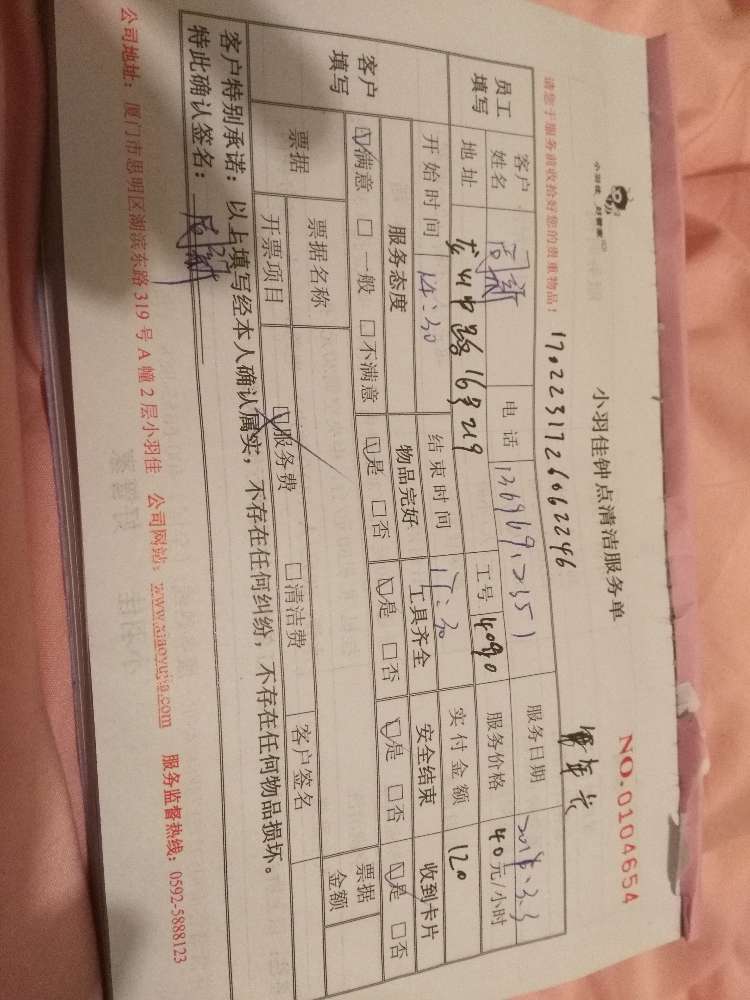 小羽佳 好管家
小羽佳钟点清洁服务单
NO.0104654
请您于服务前收拾好您的贵重物品!
1702231726062246
员工填写
客户姓名
电话
服务日期 2018.3.3
地址
工号 4090
服务价格 40元/小时
开始时间 14:30
结束时间
实付金额 120
客户填写
服务态度 物品完好 工具齐全 安全结束 收到卡片
☑满意 □一般 □不满意 ☑是 □否 ☑是 □否 ☑是 □否 ☑是 □否
票据
票据名称
票据金额
开票项目 ☑服务费 □清洁费 客户签名
客户特别承诺:以上填写经本人确认属实,不存在任何纠纷,不存在任何物品损坏。
特此确认签名:
公司地址:厦门市思明区湖滨东路319号A幢2层小羽佳 公司网站:www.xiaoyujia.com 服务监督热线:0592-5888123